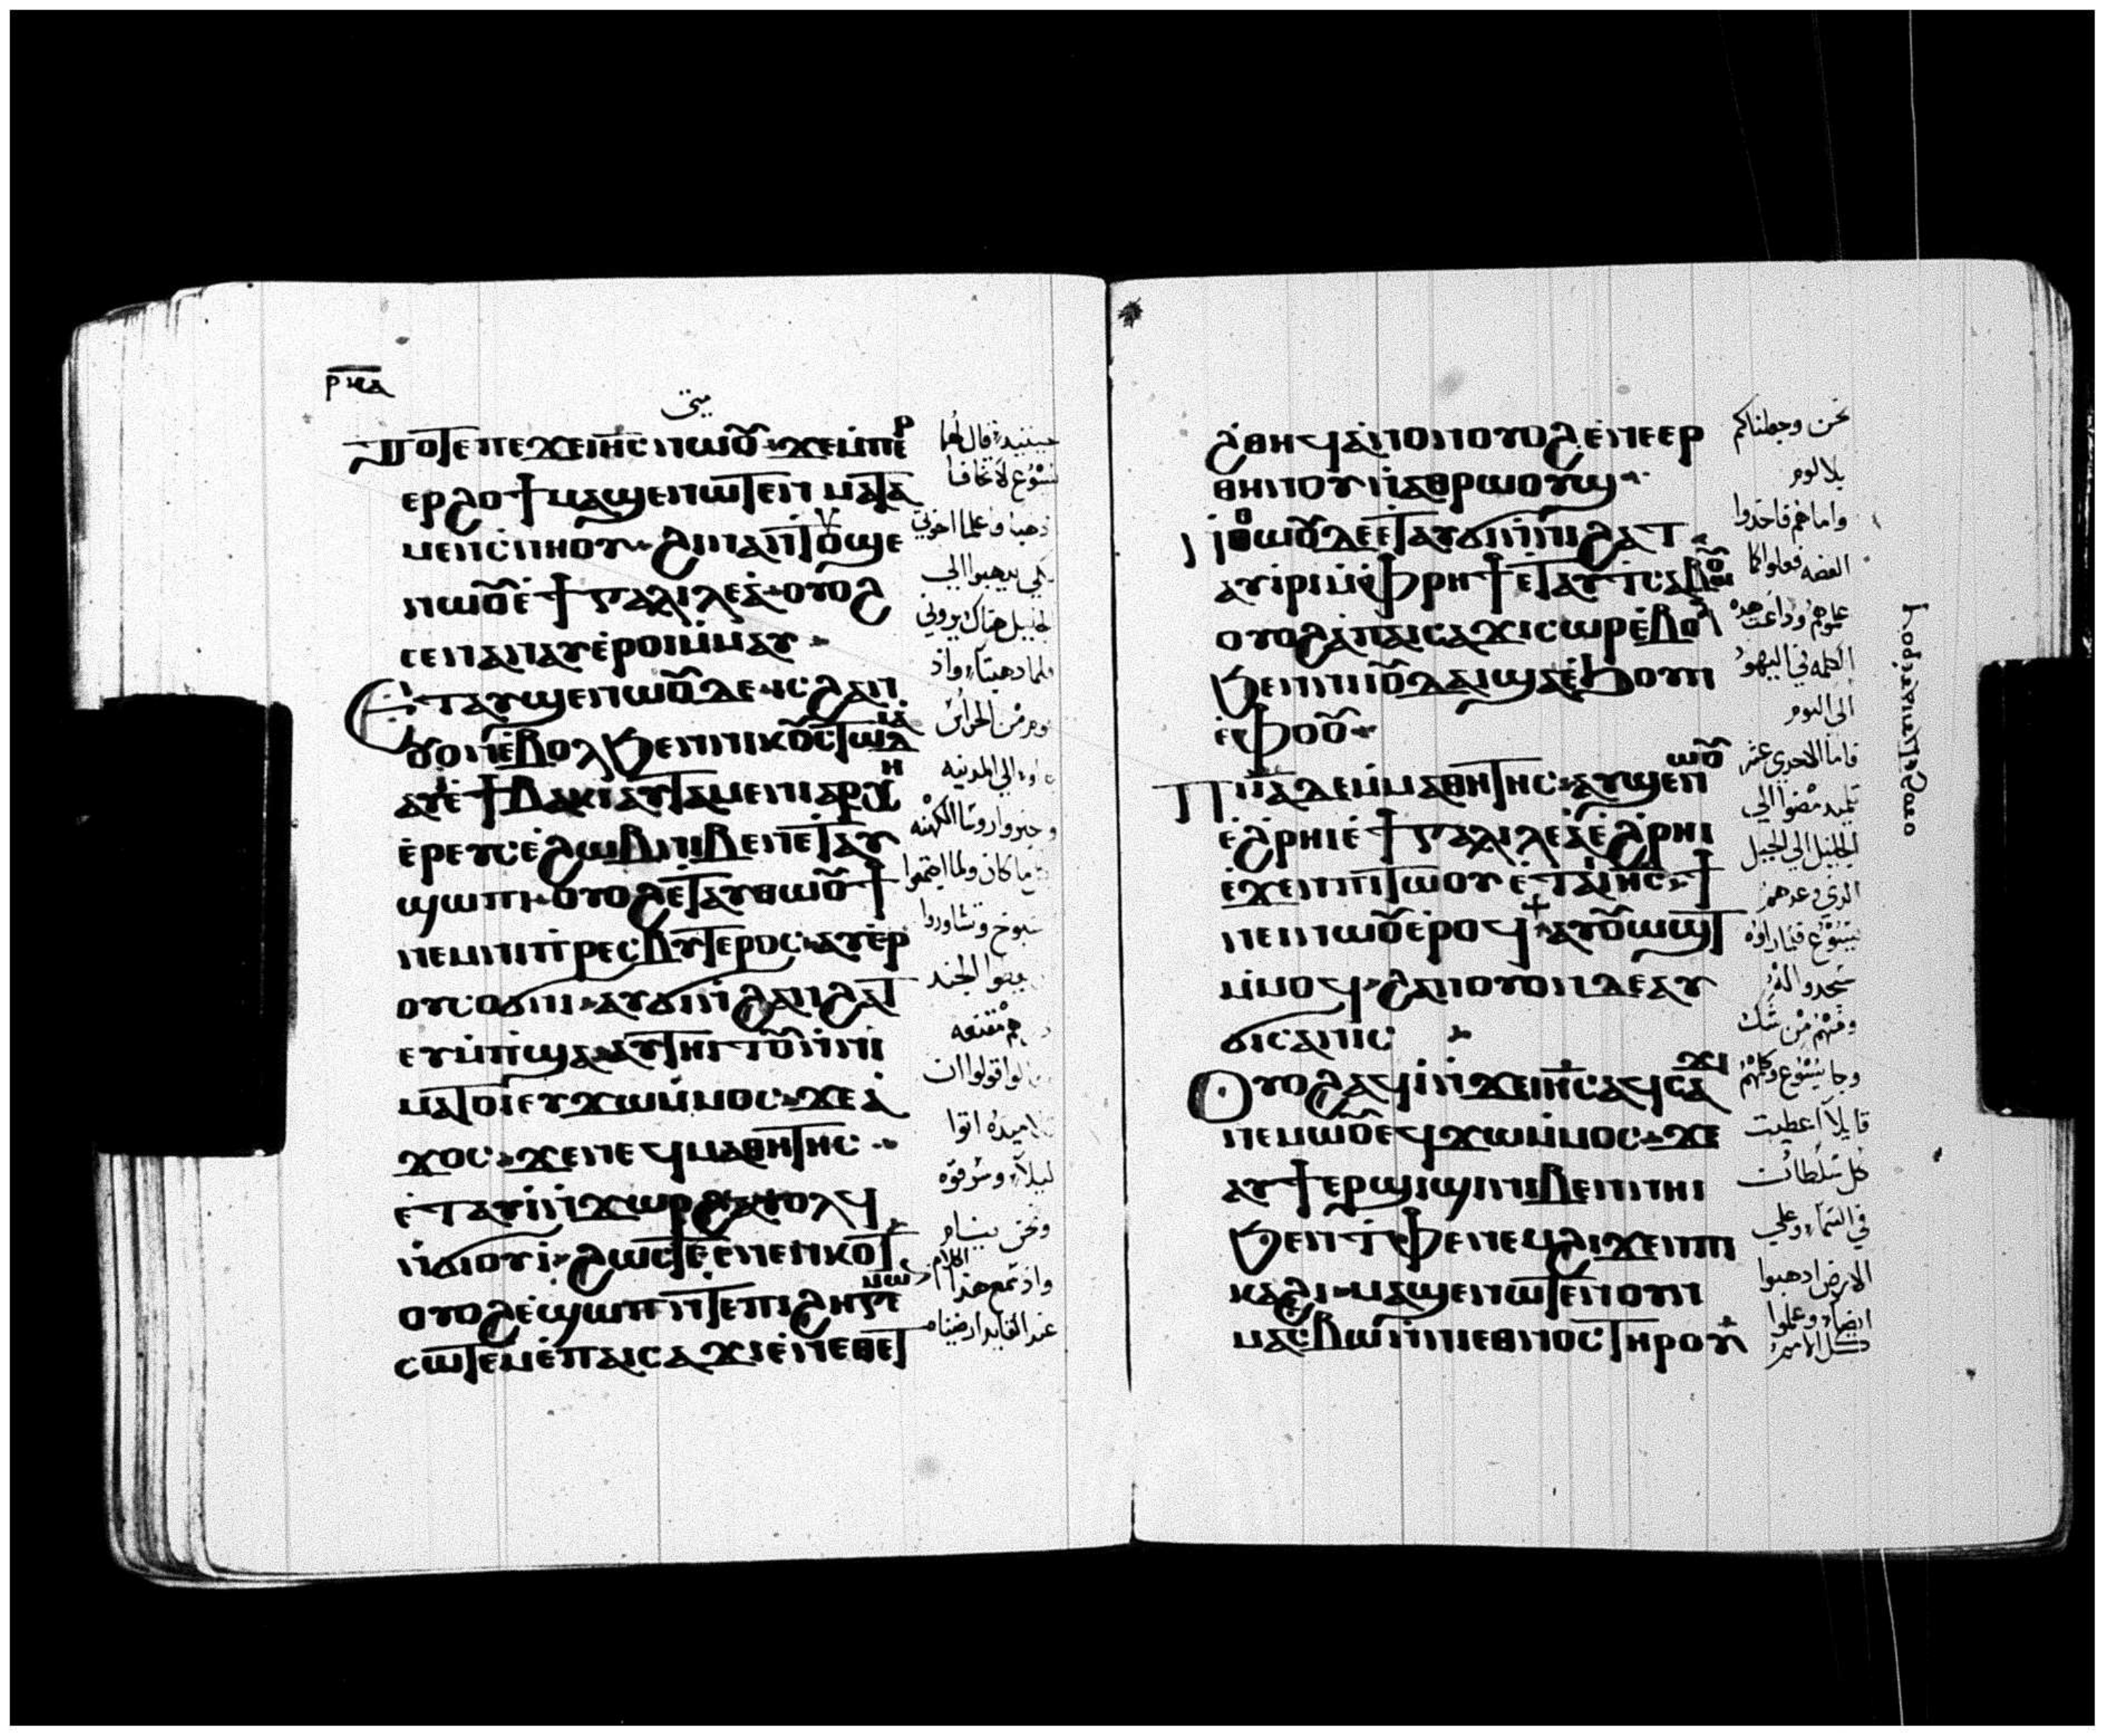 ⲣⲕⲁ
متى
ⲧⲟⲧⲉ ⲡⲉϫⲉ ⲓⲏⲥ ⲛⲱⲟⲩ ϫⲉ ⲙⲡⲉⲣ
ⲉⲣϩⲟϯ ⲙⲁϣⲉⲛⲱⲧⲉⲛ ⲙⲁⲧⲁ
ⲙⲉⲛⲥⲛⲏⲟⲩ ϩⲓⲛⲁ ⲛⲧⲟⲩϣⲉ
ⲛⲱⲟⲩ ⲉϯⲅⲁⲗⲓⲗⲉⲁ ⲟⲩⲟϩ
ⲥⲉⲛⲁⲛⲁⲩ ⲉⲣⲟⲓ ⲙⲙⲁⲩ
ⲉⲧⲁⲩϣⲉⲛⲱⲟⲩ ⲇⲉ ⲓⲥ ϩⲁⲛ
ⲟⲩⲟⲛ ⲉⲃⲟⲗ ϧⲉⲛ ⲛⲓⲕⲟⲩⲥⲧⲱⲇⲓⲁ
ⲁⲩⲓ ⲉϯⲃⲁⲕⲓ ⲁⲩⲧⲁⲙⲉ ⲛⲓⲁⲣⲭⲏ
ⲉⲣⲉⲩⲥ ⲉϩⲱⲃ ⲛⲓⲃⲉⲛ ⲉⲧⲁⲩ
ϣⲱⲡⲓ ⲟⲩⲟϩ ⲉⲧⲁⲩⲑⲱⲟⲩϯ
ⲛⲉⲙ ⲛⲓⲡⲣⲉⲥⲃⲩⲧⲉⲣⲟⲥ ⲁⲩⲉⲣ
ⲟⲩⲥⲟϭⲛⲓ ⲁⲩϭⲓ ⲛϩⲁⲛϩⲁⲧ
ⲉⲩⲙⲡϣⲁ ⲁⲩⲧⲏⲓⲧⲟⲩ ⲛⲛⲓ
ⲙⲁⲧⲟⲓ ⲉⲩϫⲱ ⲙⲙⲟⲥ ϫⲉ ⲁ
ϫⲟⲥ ϫⲉ ⲛⲉϥⲙⲁⲑⲏⲧⲏⲥ
ⲉⲧⲁⲩⲓ ⲛϫⲱⲣϩ ⲁⲩⲟⲗϥ
ⲛϭⲓⲟⲩⲓ ϩⲱⲥⲧⲉ ⲉⲛⲉⲛⲕⲟⲧ
ⲟⲩⲟϩ ⲉϣⲱⲡ ⲛⲧⲉ ⲡⲓϩⲏⲅⲉⲙⲱⲛ
ⲥⲱⲧⲉⲙ ⲉⲡⲁⲓⲥⲁϫⲓ ⲉⲛⲉⲑⲉⲧ
حينيذ قال لهما
يسوع لا تخافا
ذهبا واعلما اخوتي
لكي يذهبوا الي
الجليل هناك يروني
فلما ذهبتا واذ
قوم من الحراس
الي المدينه
وخبروا روسا الكهنه
ما كان ولما اجتمعوا
شيوخ وتشاوروا
الجند
مقنعه
قولوا ان
تلاميذه اتوا
ليلا وسرقوه
ونحن نيام
واذ سمع هذا الكلام
عند القايد ارضيناه
ϩⲑⲏϥ ⲁⲛⲟⲛ ⲟⲩⲟϩ ⲉⲛⲉⲉⲣ
ⲑⲏⲛⲟⲩ ⲛⲁⲑⲣⲱⲟⲩϣ
ⲛⲑⲱⲟⲩ ⲇⲉ ⲉⲧⲁⲩϭⲓ ⲛⲛⲓϩⲁⲧ
ⲁⲩⲓⲣⲓ ⲙⲫⲣⲏϯ ⲉⲧⲁⲩⲧⲥⲁⲃⲱⲟⲩ
ⲟⲩⲟϩ ⲁ ⲡⲁⲓⲥⲁϫⲓ ⲥⲱⲣ ⲉⲃⲟⲗ
ϧⲉⲛ ⲛⲓⲓⲟⲩⲇⲁⲓ ϣⲁ ⲉϧⲟⲩⲛ
ⲉⲫⲟⲟⲩ
ⲡⲓⲓⲁ ⲇⲉ ⲙⲙⲁⲑⲏⲧⲏⲥ ⲁⲩϣⲉⲛⲱⲟⲩ
ⲉϩⲣⲏⲓ ⲉϯⲅⲁⲗⲓⲗⲉⲁ ⲉϩⲣⲏⲓ
ⲉϫⲉⲛ ⲡⲓⲧⲱⲟⲩ ⲉⲧⲁ ⲓⲏⲥ ϯ
ⲛⲉⲛⲧⲱⲟⲩ ⲉⲣⲟϥ ⲁⲩⲟⲩⲱϣⲧ
ⲙⲙⲟϥ ϩⲁⲛⲟⲩⲟⲛ ⲇⲉ ⲁⲩ
ϭⲓⲥⲁⲛⲓⲥ
ⲟⲩⲟϩ ⲁϥⲓ ⲛϫⲉ ⲓⲏⲥ ⲁϥⲥⲁϫⲓ
ⲛⲉⲙⲱⲟⲩ ⲉϥϫⲱ ⲙⲙⲟⲥ ϫⲉ
ⲁⲩϯ ⲉⲣϣⲓϣⲓ ⲛⲓⲃⲉⲛ ⲛⲏⲓ
ϧⲉⲛ ⲧⲫⲉ ⲛⲉⲙ ϩⲓϫⲉⲛ ⲡⲓ
ⲕⲁϩⲓ ⲙⲁϣⲉⲛⲱⲧⲉⲛ ⲟⲩⲛ
ⲙⲁⲥⲃⲱ ⲛⲛⲓⲉⲑⲛⲟⲥ ⲧⲏⲣⲟⲩ
نحن وجعلناكم
بلا لوم
واما هم فاخذوا
الفضه ففعلوا كما
علموهم وذاعت هذه
الكلمه في اليهود
الي اليوم
فاما الاحدي عشر
تلميذ مضوا الي
الجليل الي الجبل
الذي وعدهم
يسوع فلما راوه
سجدوا له
ومنهم من شك
وجا يسوع وكلمهم
قايلا اعطيت
كل سلطان
في السما وعلي
الارض اذهبوا
وعلموا
كل الامم